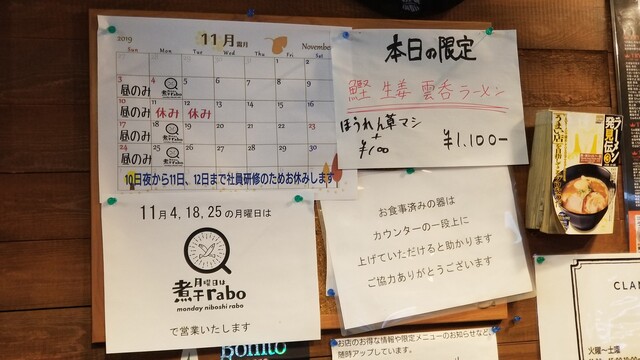 2019
11月 霜月
November
Sun Mon Tue Wed Thu Fri Sat
1 2
3 4 5 6 7 8 9
昼のみ 煮干rabo
10 11 12 13 14 15 16
昼のみ 休み 休み
17 18 19 20 21 22 23
昼のみ 煮干rabo
24 25 26 27 28 29 30
昼のみ 煮干rabo
10日夜から11日、12日まで社員研修のためお休みします
11月4,18,25の月曜日は
月曜日は
煮干rabo
monday niboshi rabo
で営業いたします
本日の限定
鰹 生姜 雲呑ラーメン
ほうれん草マシ
+
¥100
¥1,100-
お食事済みの器は
カウンターの一段上に
上げていただけると助かります
ご協力ありがとうございます
ラーメン
発見伝
Bonito
お店のお得な情報や限定メニューのお知らせなど
随時アップしています。
CLAN
火曜〜土曜